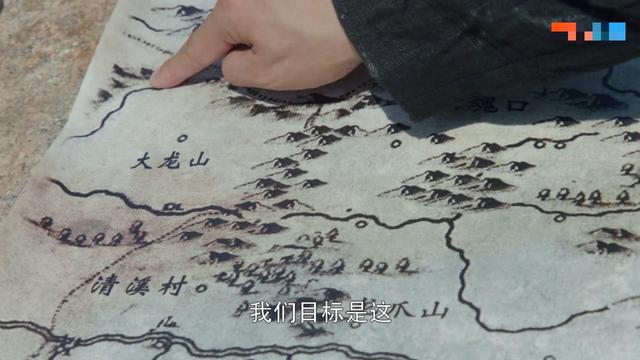 魂口
大龙山
清溪村
爪山
我们目标是这